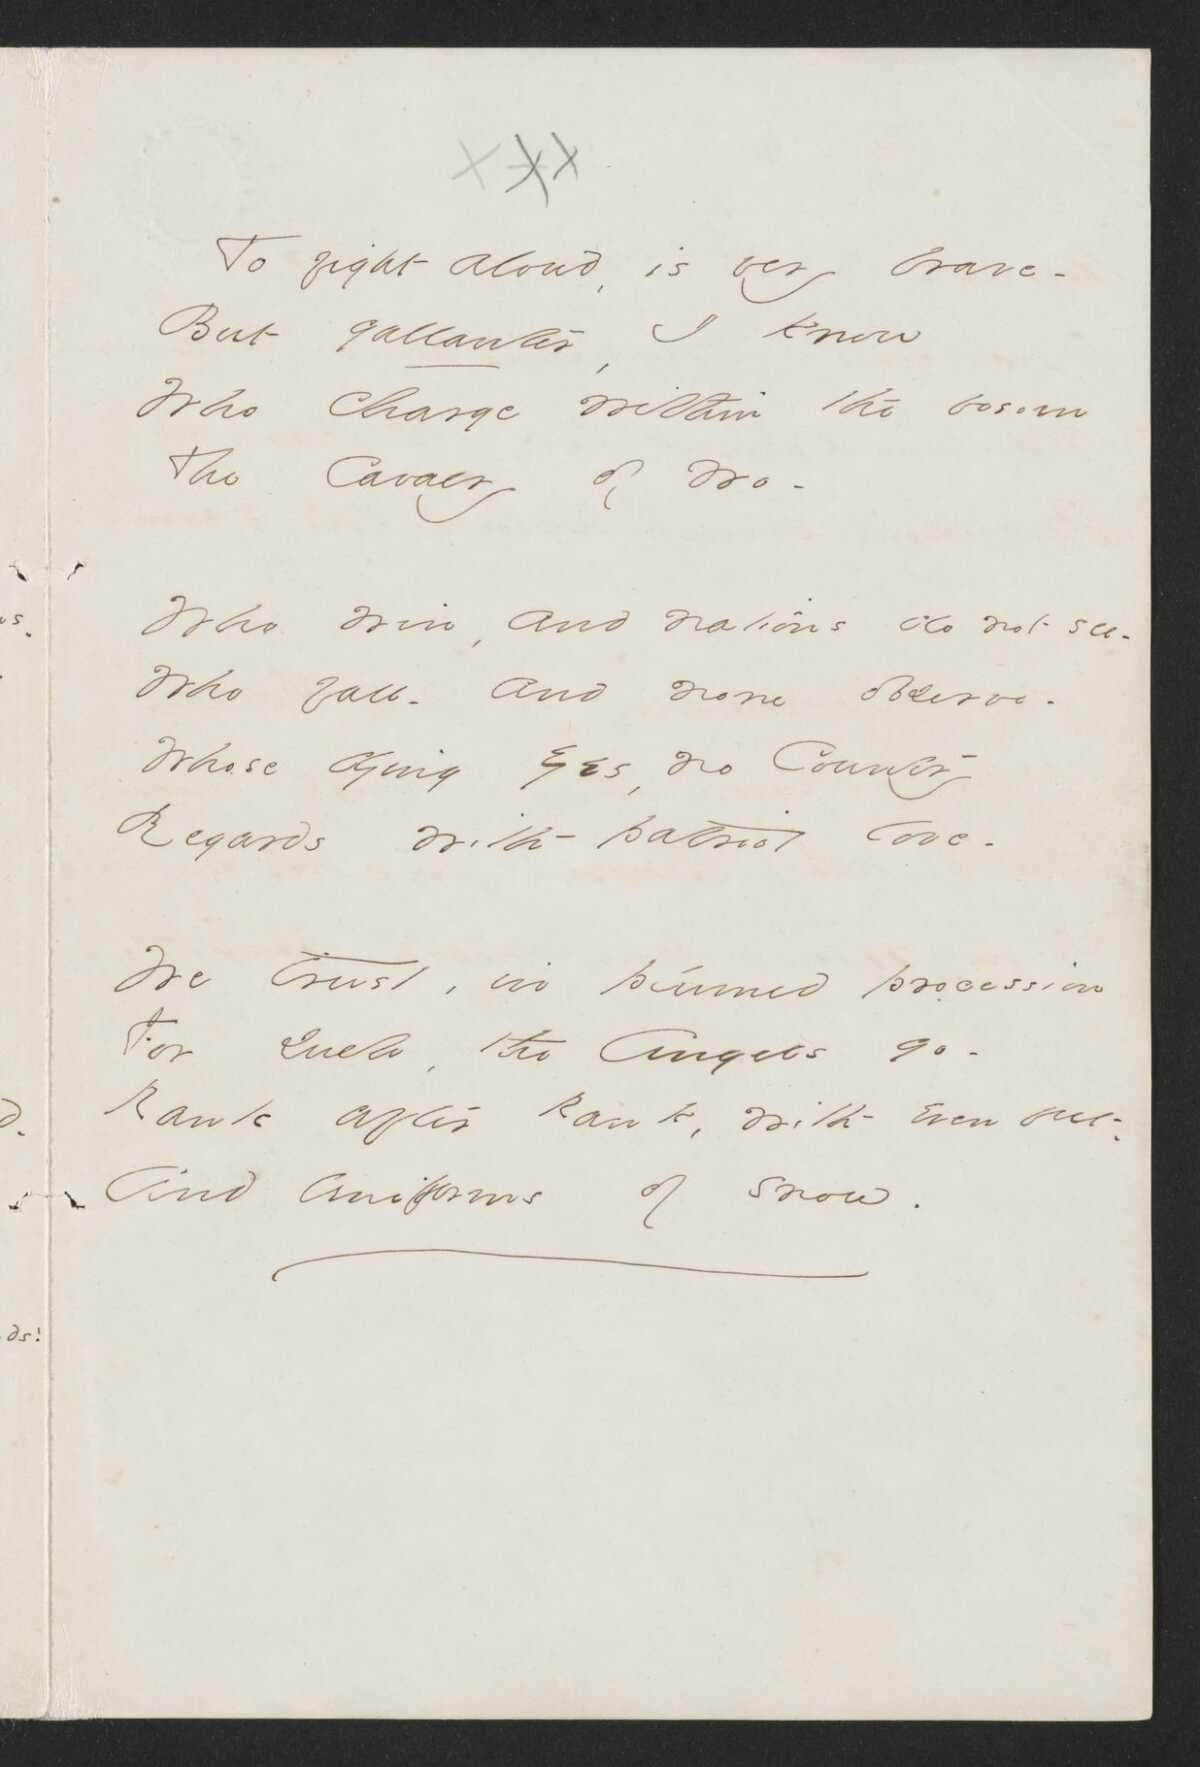 To fight aloud, is very brave -
But gallanter, I know
Who charge within the bosom
The Cavalry of Wo -
Who win, and nations do not see -
Who fall - and none observe -
Whose dying Eyes, no Country
Regards with patriot love -
We trust, in plumed procession
For such, the Angels go -
Rank after Rank, with even feet -
And Uniforms of snow.